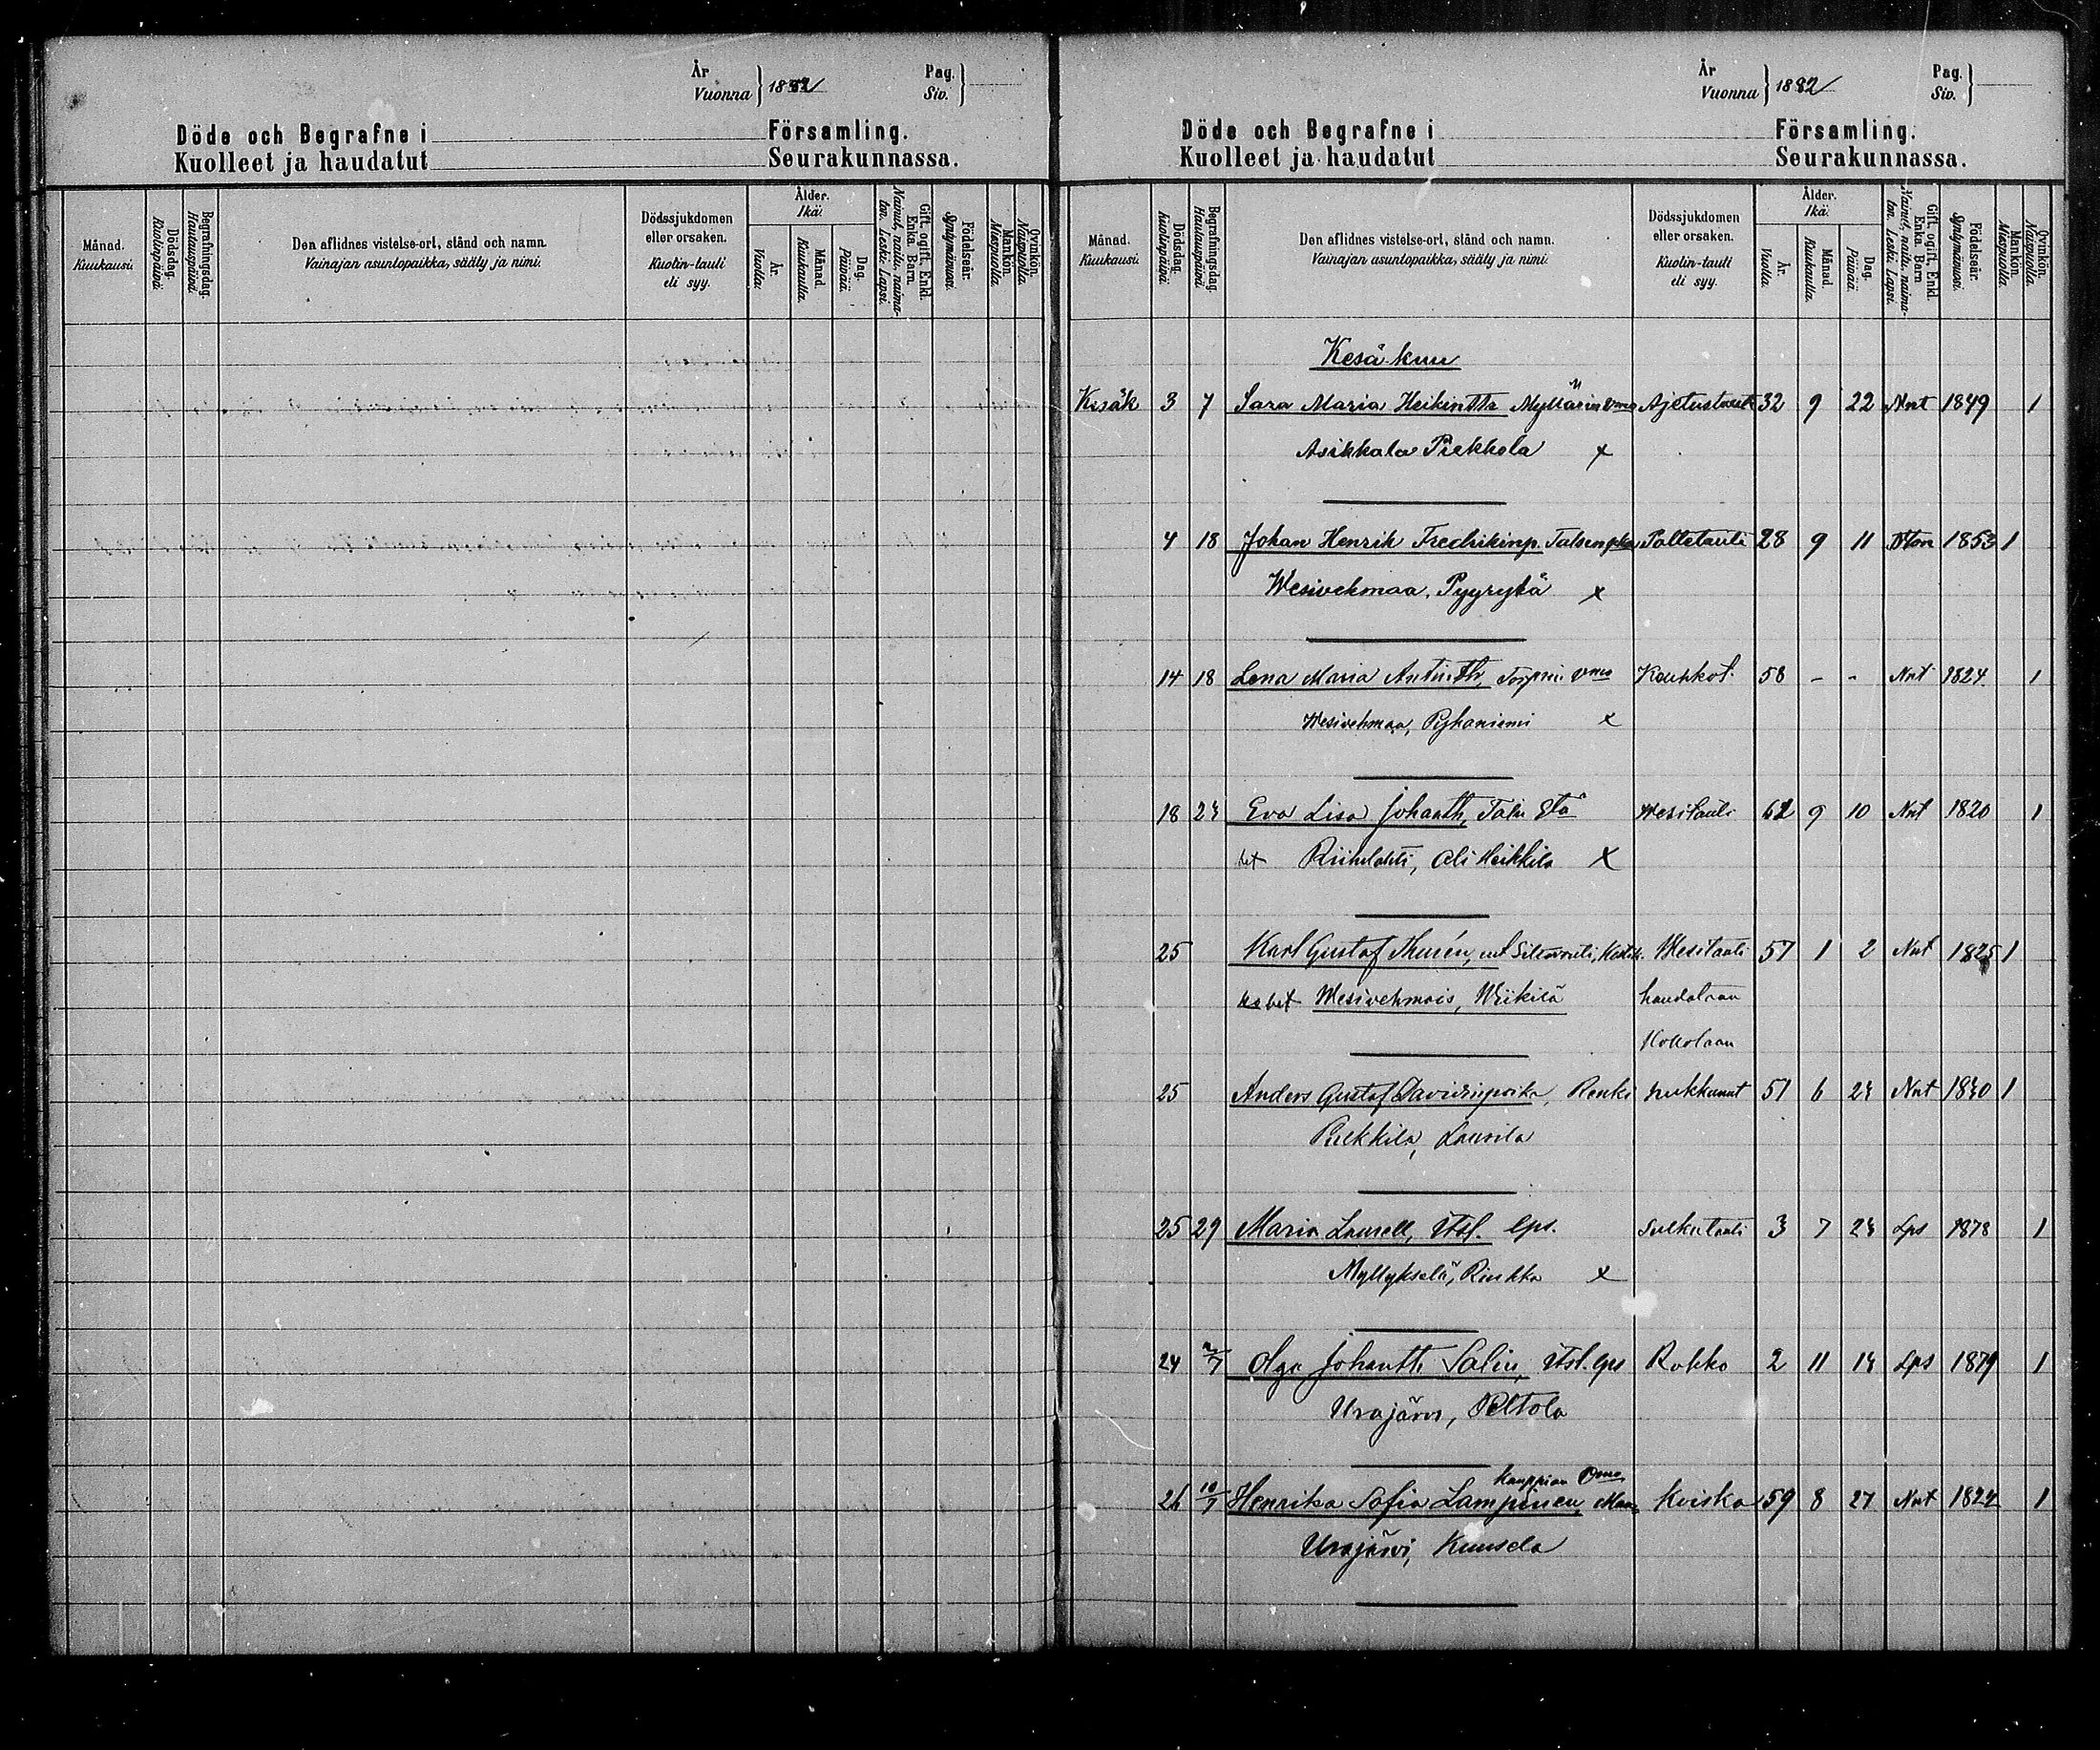 År
Vuonna } 1882
Pag.
Siv. }
Döde och Begrafne i Församling.
Kuolleet ja haudatut Seurakunnassa.
Månad. Kuukausi.
Dödsdag. Kuolinpäivä.
Begrafningsdag. Hautauspäivä
Den aflidnes vistelse-ort, stånd och namn.
Vainajan asuntopaikka, sääty ja nimi.
Dödssjukdomen eller orsaken.
Kuolin-tauti eli syy.
Ålder. Ikä.
År. Vuotta.
Månad. Kuukautta.
Dag. Päivää.
Gift, ogift, Enkl. Enka. Barn
Nainut, naitu, naimaton. Leski. Lapsi.
Födelseår. Syntymävuosi.
Mankön. Miespuolia.
Qvinkön. Naispuolia.
År
Vuonna } 1882
Pag.
Siv. }
Döde och Begrafne i Församling.
Kuolleet ja haudatut Seurakunnassa.
Månad. Kuukausi.
Dödsdag. kuolinpäivä
Begrafningsdag. Hautauspäivä
Den aflidnes vistelse-ort, stånd och namn.
Vainajan asuntopaikka, sääty ja nimi.
Dödssjukdomen eller orsaken.
Kuolin-tauti eli syy.
Ålder. Ikä.
År. Vuotta.
Månad. Kuukautta.
Dag. Päivää.
Gift, ogift, Enkl. Enka. Barn
Nainut, naitu, naimaton. Leski. Lapsi.
Födelseår. Syntymävuosi.
Mankön. Miespuolia.
Qvinkön. Naispuolia.
Kesä-kuu
Kesäk 3 7 Sara Maria Heikintr Myllärin vmo Ajetustauti 32 9 22 Nnt 1849 1
Asikkala Piekkola x
4 18 Johan Henrik Fredrikinp. Talsenpka Poltetauti 28 9 11 Nton 1853 1
Wesivehmaa, Pyyrytä x
14 18 Lena Maria Antintr, Torpin vmo Keuhkot. 58 - - Nnt 1824 1
Wesivehmaa, Pyhäniemi x
18 24 Eva Lisa Johantr, Talu Wesitauti 62 9 10 Nnt 1820 1
Riihilahti, Ali Heikkilä x
25 Karl Gustaf Thurén, Wesitauti 57 1 2 Nnt 1825 1
Wesivehmais, Wiikilä haudataan
Kokolaan
25 Anders Gustaf Davidinpoika, Renki hukkunut 51 6 24 Nnt 1830 1
Pulkkila, Laurila
25 29 Maria Laurell, itsl. lps. Surkutauti 3 7 24 Lps 1878 1
Myllykselä, Rinkka x
24 2/7 Olga Johantr Salin, itsl. lps Rokko 2 11 14 Lps 1879 1
Urajärvi, Peltola
Kauppian vmo
26 10/7 Henrika Sofia Lampinen, Kviska 59 8 27 Nnt 1822 1
Urajärvi, Kuusela